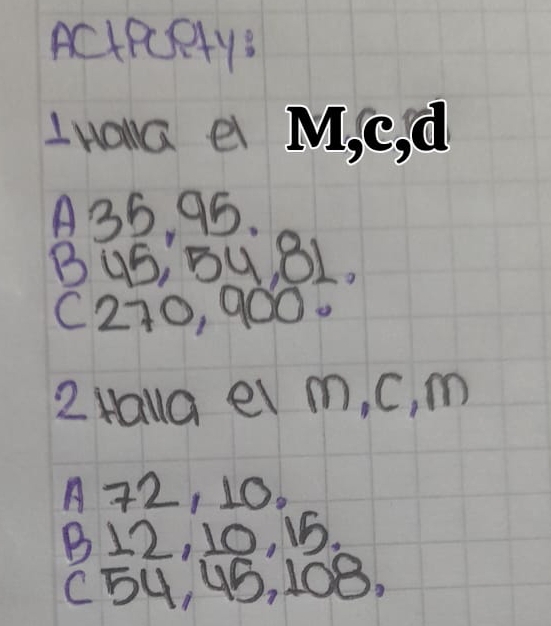 ACtPvPty:
1 Halla el M,c,d
A 35, 95.
B 45, 54, 81.
C 270, 900.
2 Halla el m,c,m
A 72, 10.
B 12, 10, 15.
C 54, 45, 108.